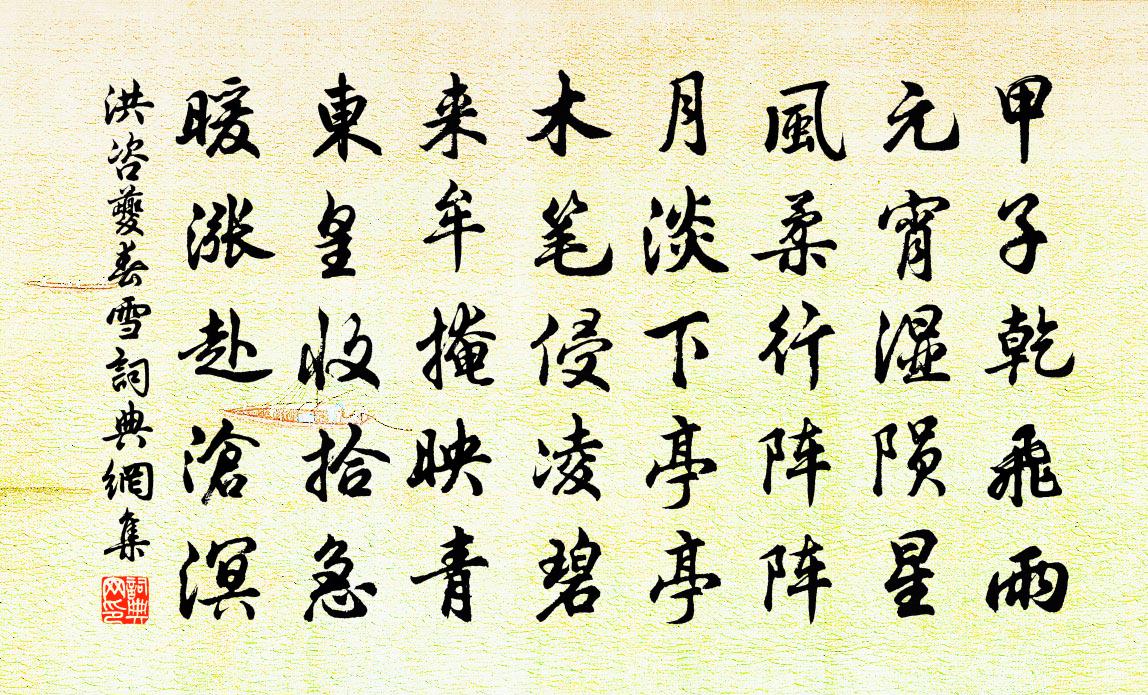 甲子乾飛雨
元宵湿陨星
風柔行阵阵
月淡下亭亭
木笔侵凌碧
来牟掩映青
東皇收拾急
暖漲赴滄溟
洪咨夔春雪詞典網集
詞典网印